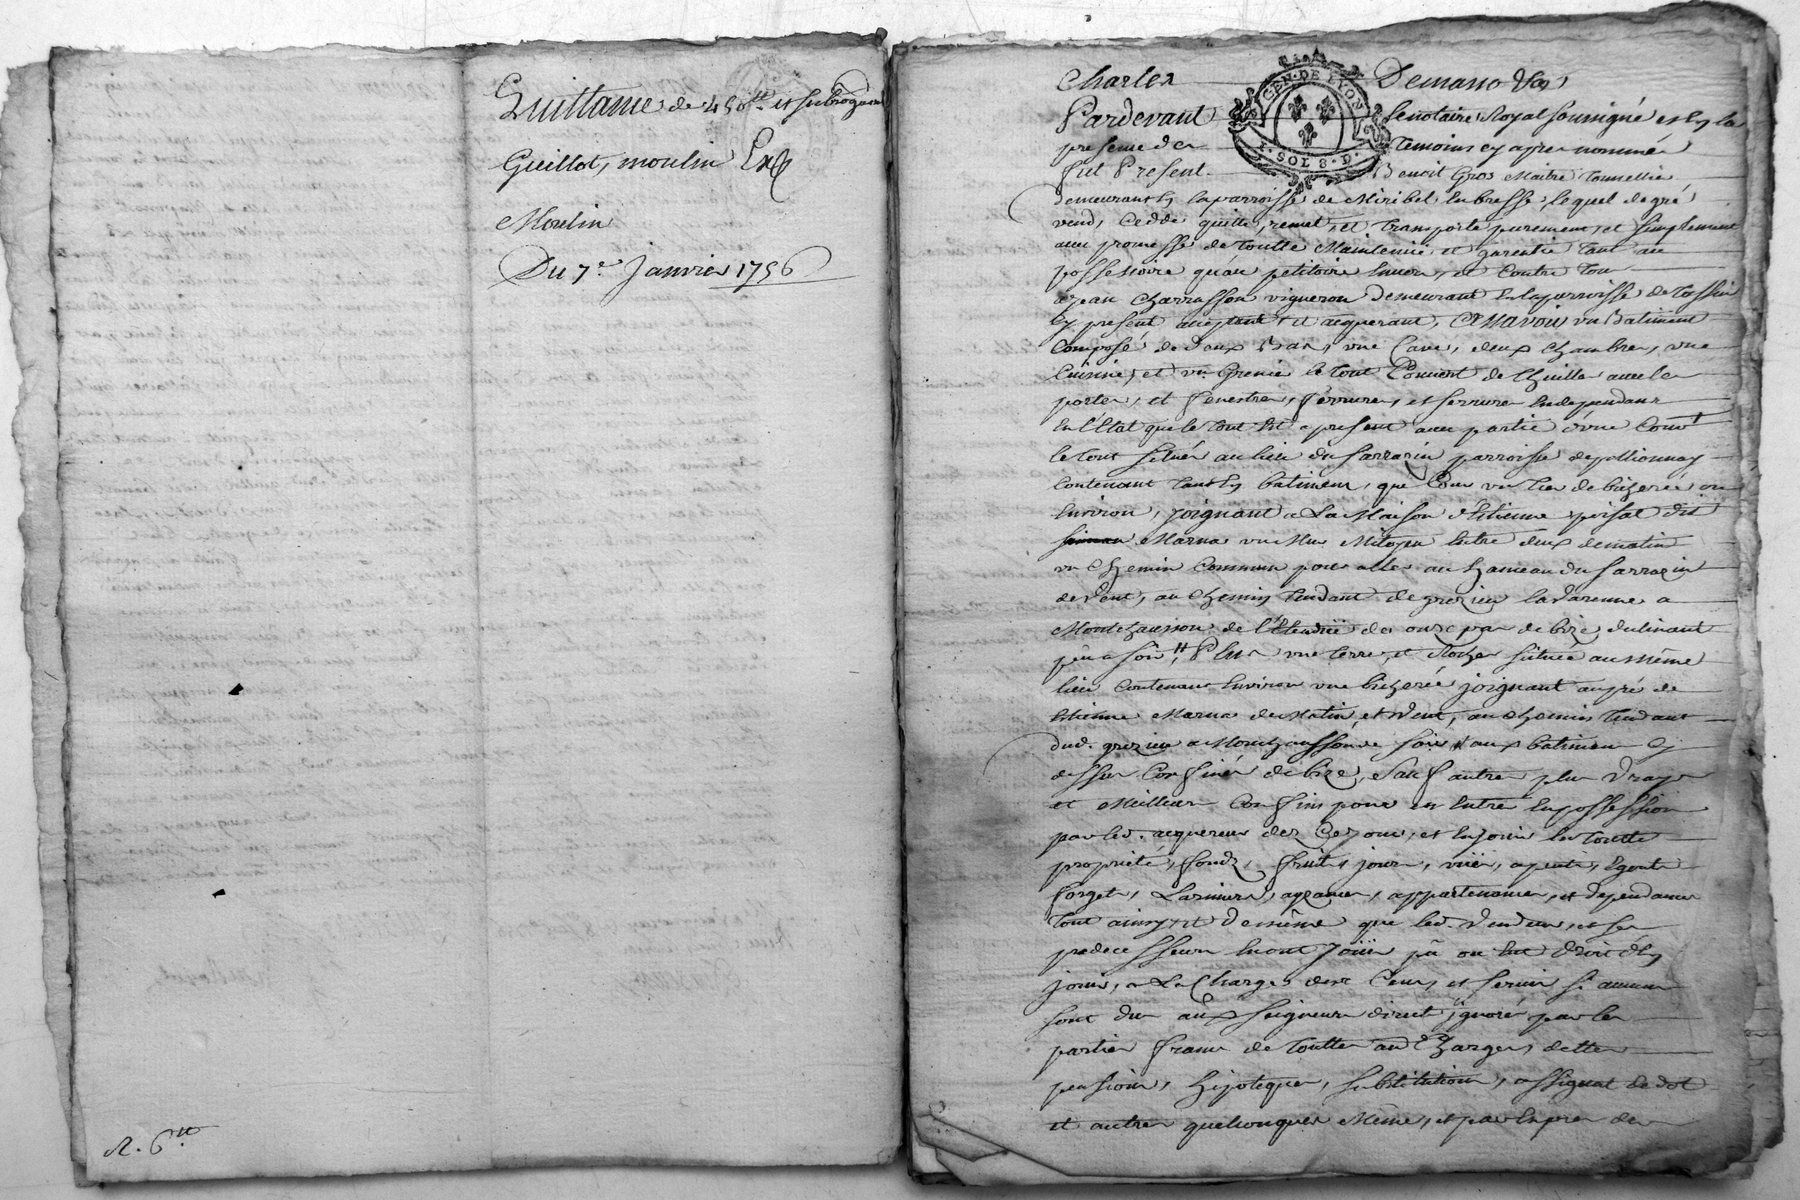 Quittance de 450 ₶ et subrogaon
Guillot, moulin Exp
Moulin
Du 7e Janvier 1756
R. 6 ₶
Charles Demano
GEN · DE LYON
1 · SOL 8 · D ·
Pardevant le notaire Royal soussigné et en la
presence des Temoins cy apres nommés
fut Present Benoit Gros Maitre Tonnellié
demeurant en la parroisse de Miribel en bresse, lequel de gré
vend, cedde quitte, remet, et transporte purement et simplement
avec promesse de toutte Maintenüe et garentie tant au
possessoire qu'au petitoire envers, et contre tous
a jean Charrasson vigneron demeurant en la parroisse de Tassin
cy present acceptant et acquerant, Scavoir un Batiment
composé de deux Bas, une Cave, deux chambres, une
Cuisine, et un Grenié le tout Couvert de thuilles avec les
portes, et fenestres, ferrures, et serrures en dependans
en l'Etat que le tout est a present avec partie d'une Cour
le tout situés au lieu du Sarrazin parroisse de pollionnay
contenant tant en batimens, que Cour un tiers de bicherée ou
environ, joignant a La Maison d'Etienne poisat dit
Marna un Mur Mitoyen entre deux de matin
un Chemin Commun pour aller au hameau du Sarrazin
de vent, au chemin tendant de grezieu la varenne a
Montchausson de l' des onze par de bize, declinant
peu a soir ₶ Plus une terre, et Rocher située au même
lieu contenant Environ une bicherée joignant au pré de
Etienne Marna de Matin, et vent, au chemin tendant
dud. grezieu a Montchausson de soir et aux batimens cy
dessus Confinés de bize, Sauf autres plus vrays
et Meilleurs Confins pour en entré en possession
par led. acquereur dez Ce jour, et en jouir en toutte
proprieté, fonds, fruits, jours, vües, apents, Egouts
forgets, Larmiers, aysances, appartenances, et dependances
tout ainsy et de même que led. vendeur, et ses
predecesseurs en ont joüir pû ou eut droit d'en
jouir, a La Charge des Cens, et servis si aucuns
sont dus aux seigneurs direct ignorés par les
parties francs de touttes au Charges, dettes
pensions, hipoteques, substitutions, assignat de dot
et autres quelconques Même, et par Expres de